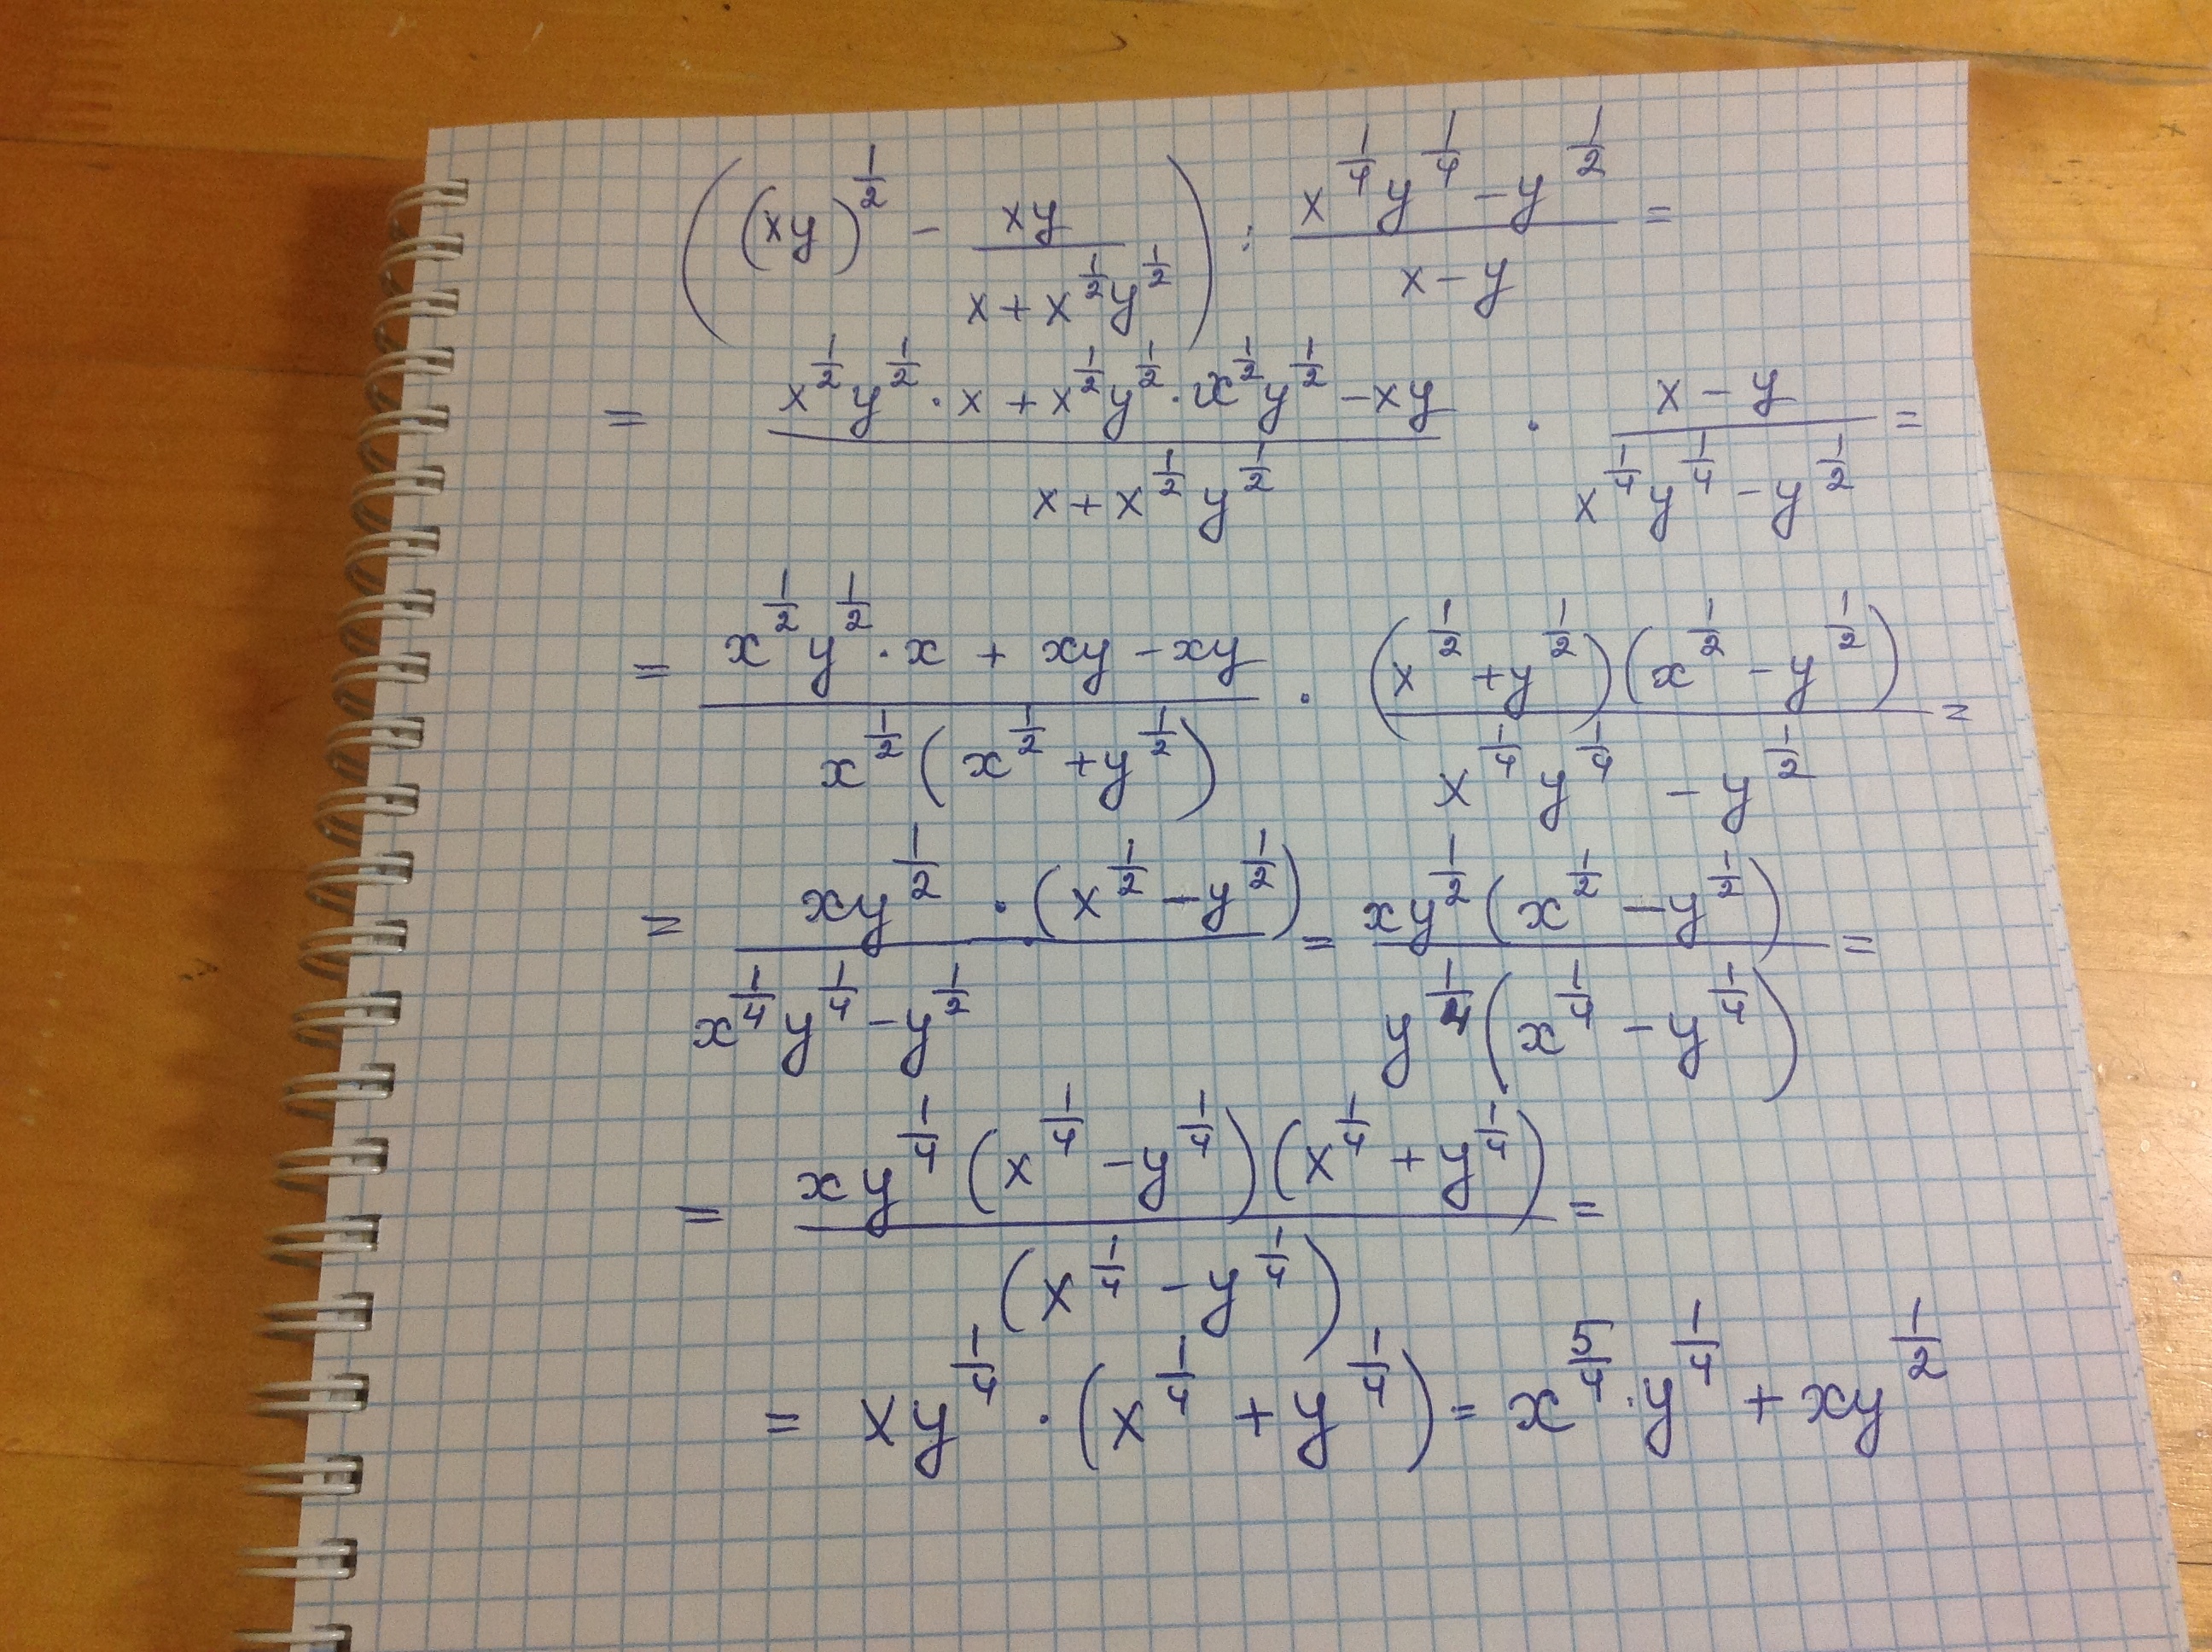 ((xy)^{1/2} - \frac{xy}{x + x^{1/2}y^{1/2}}) : \frac{x^{1/4}y^{1/4} - y^{1/2}}{x - y} =
= \frac{x^{1/2}y^{1/2} · x + x^{1/2}y^{1/2} · x^{1/2}y^{1/2} - xy}{x + x^{1/2}y^{1/2}} · \frac{x - y}{x^{1/4}y^{1/4} - y^{1/2}} =
= \frac{x^{1/2}y^{1/2} · x + xy - xy}{x^{1/2}(x^{1/2} + y^{1/2})} · \frac{(x^{1/2} + y^{1/2})(x^{1/2} - y^{1/2})}{x^{1/4}y^{1/4} - y^{1/2}} =
= \frac{xy^{1/2} · (x^{1/2} - y^{1/2})}{x^{1/4}y^{1/4} - y^{1/2}} = \frac{xy^{1/2}(x^{1/2} - y^{1/2})}{y^{1/4}(x^{1/4} - y^{1/4})} =
= \frac{xy^{1/4}(x^{1/4} - y^{1/4})(x^{1/4} + y^{1/4})}{(x^{1/4} - y^{1/4})} =
= xy^{1/4} · (x^{1/4} + y^{1/4}) = x^{5/4} · y^{1/4} + xy^{1/2}